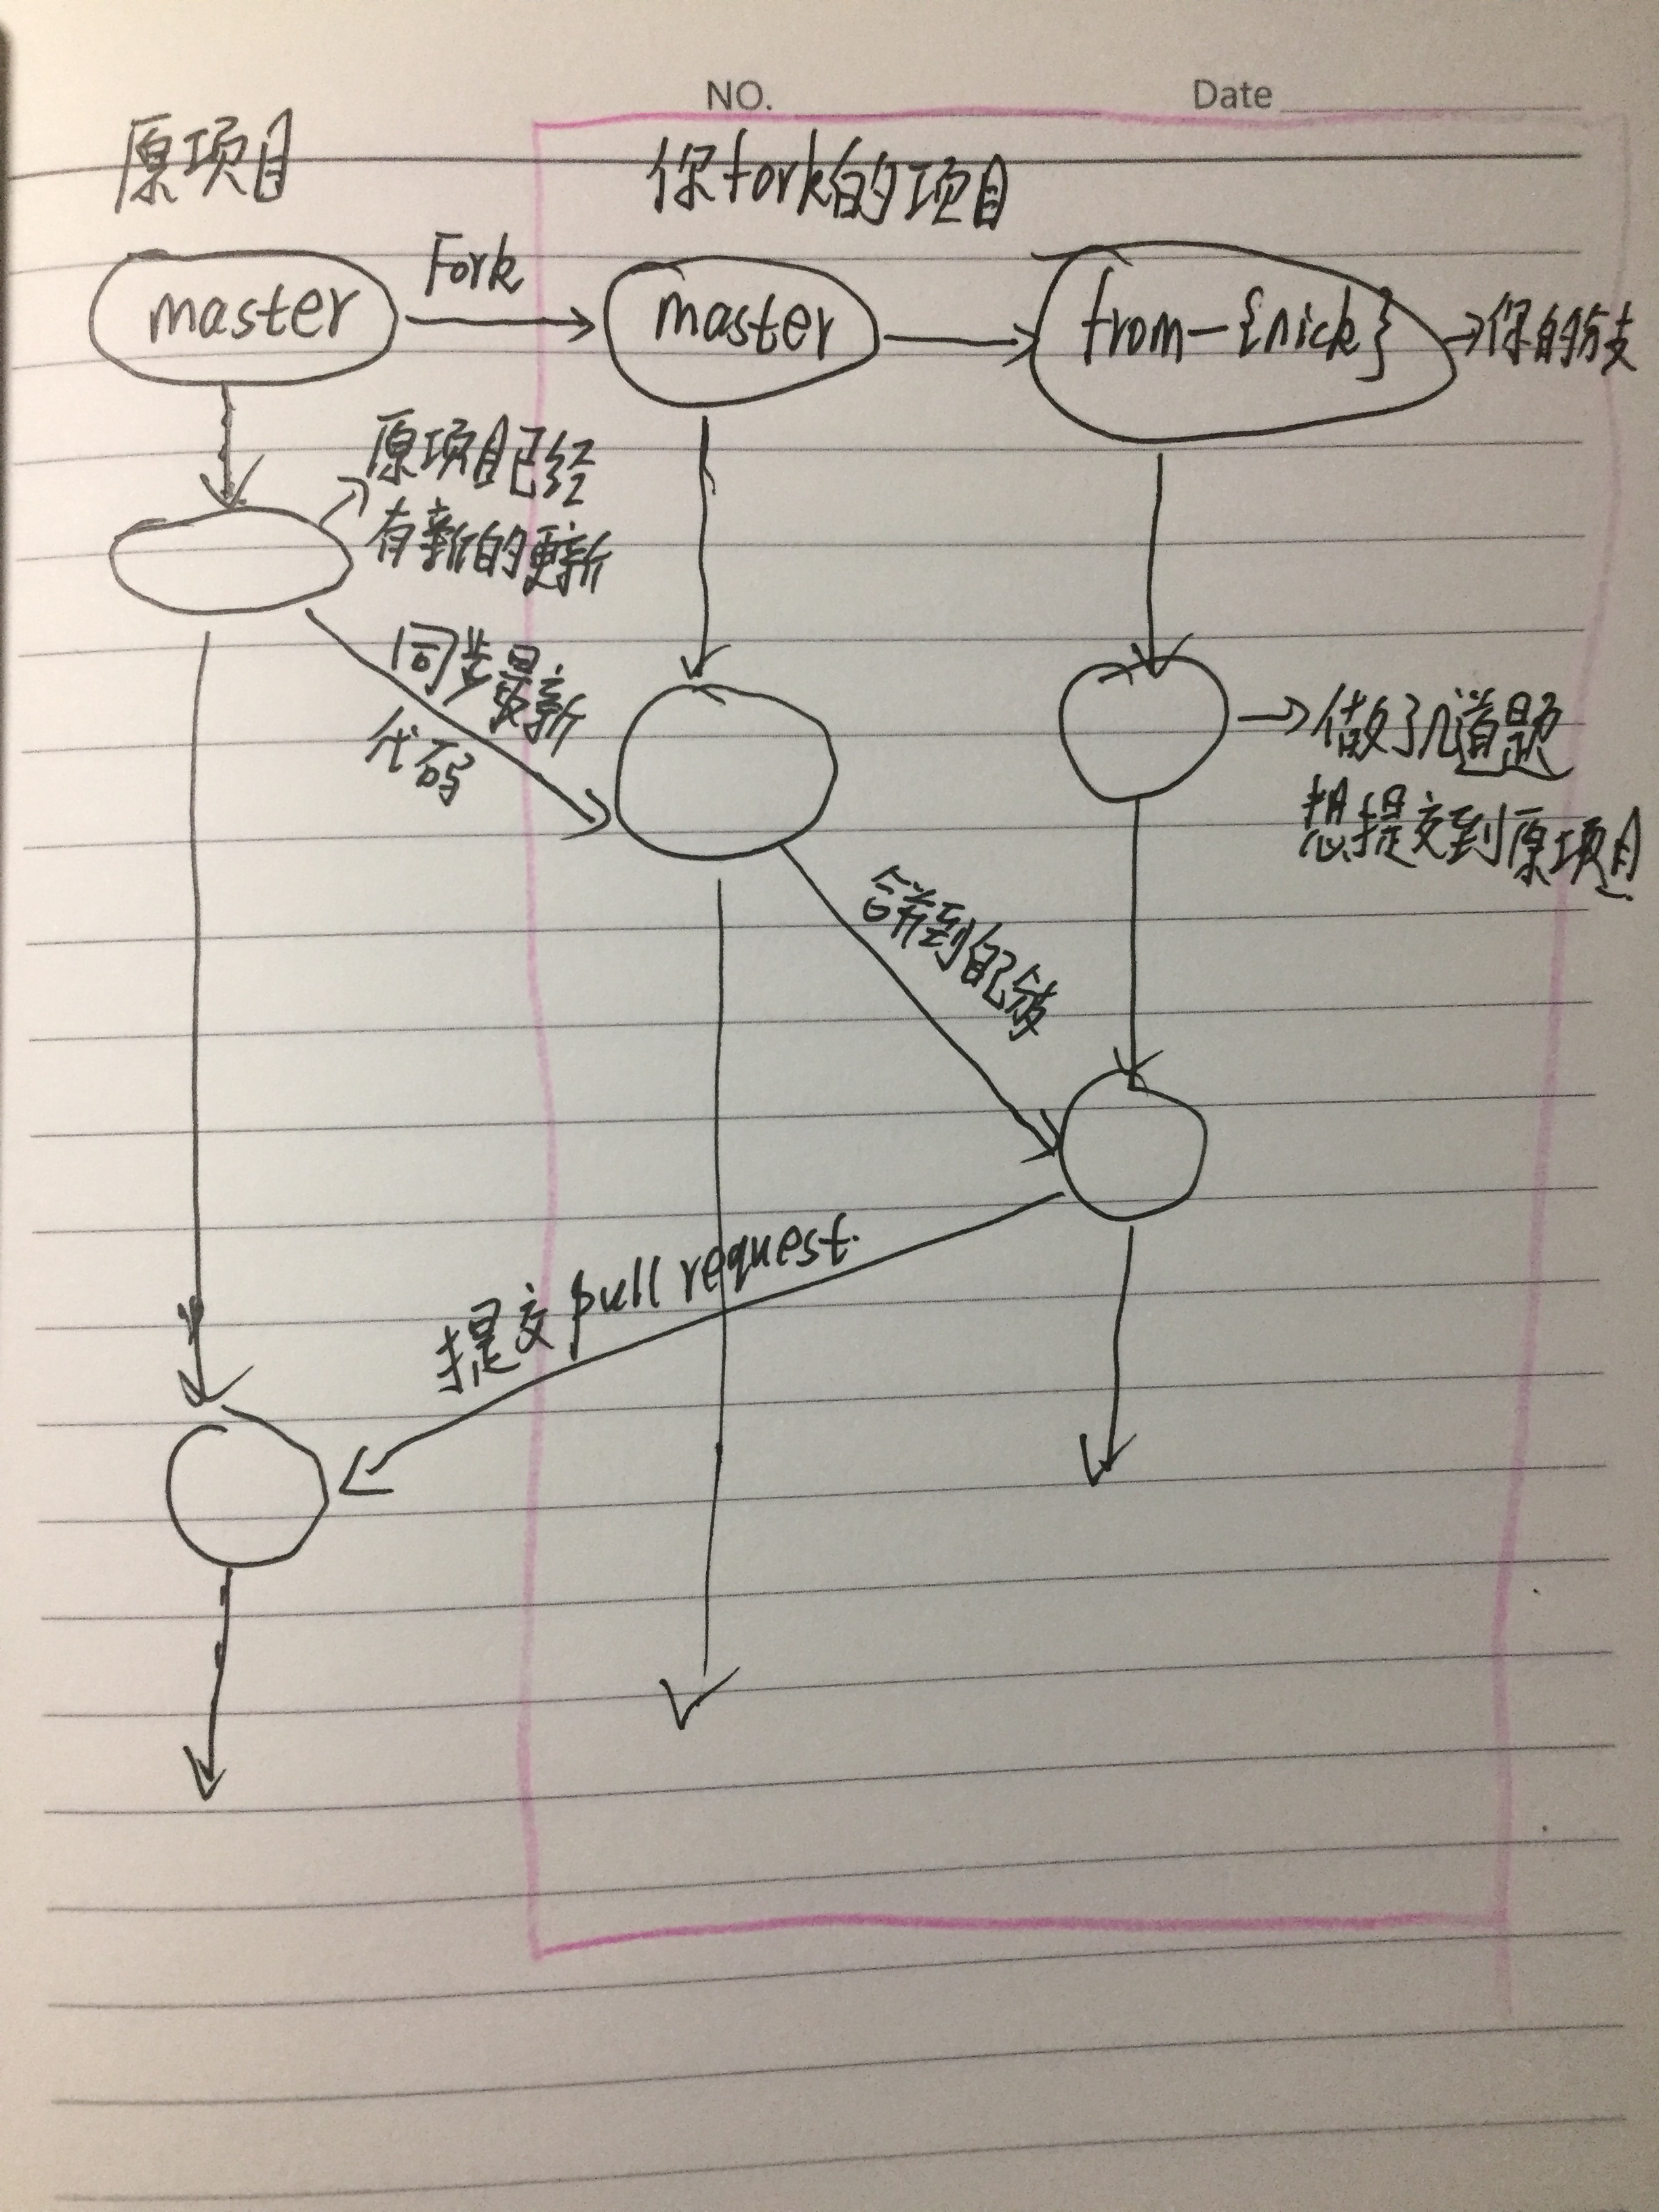 NO.
Date
原项目
你fork的项目
Fork
master
master
from-{nick}
你的分支
原项目已经
有新的更新
同步最新
代码
做了几道题
想提交到原项目
合并到自己分支
提交pull request.